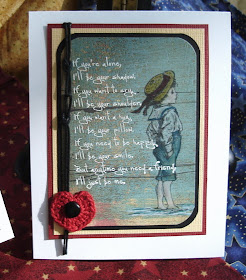 If you're alone,
I'll be your shadow.
If you want to cry,
I'll be your shoulder.
If you want a hug,
I'll be your pillow.
If you need to be happy,
I'll be your smile.
But anytime you need a friend,
I'll just be me.